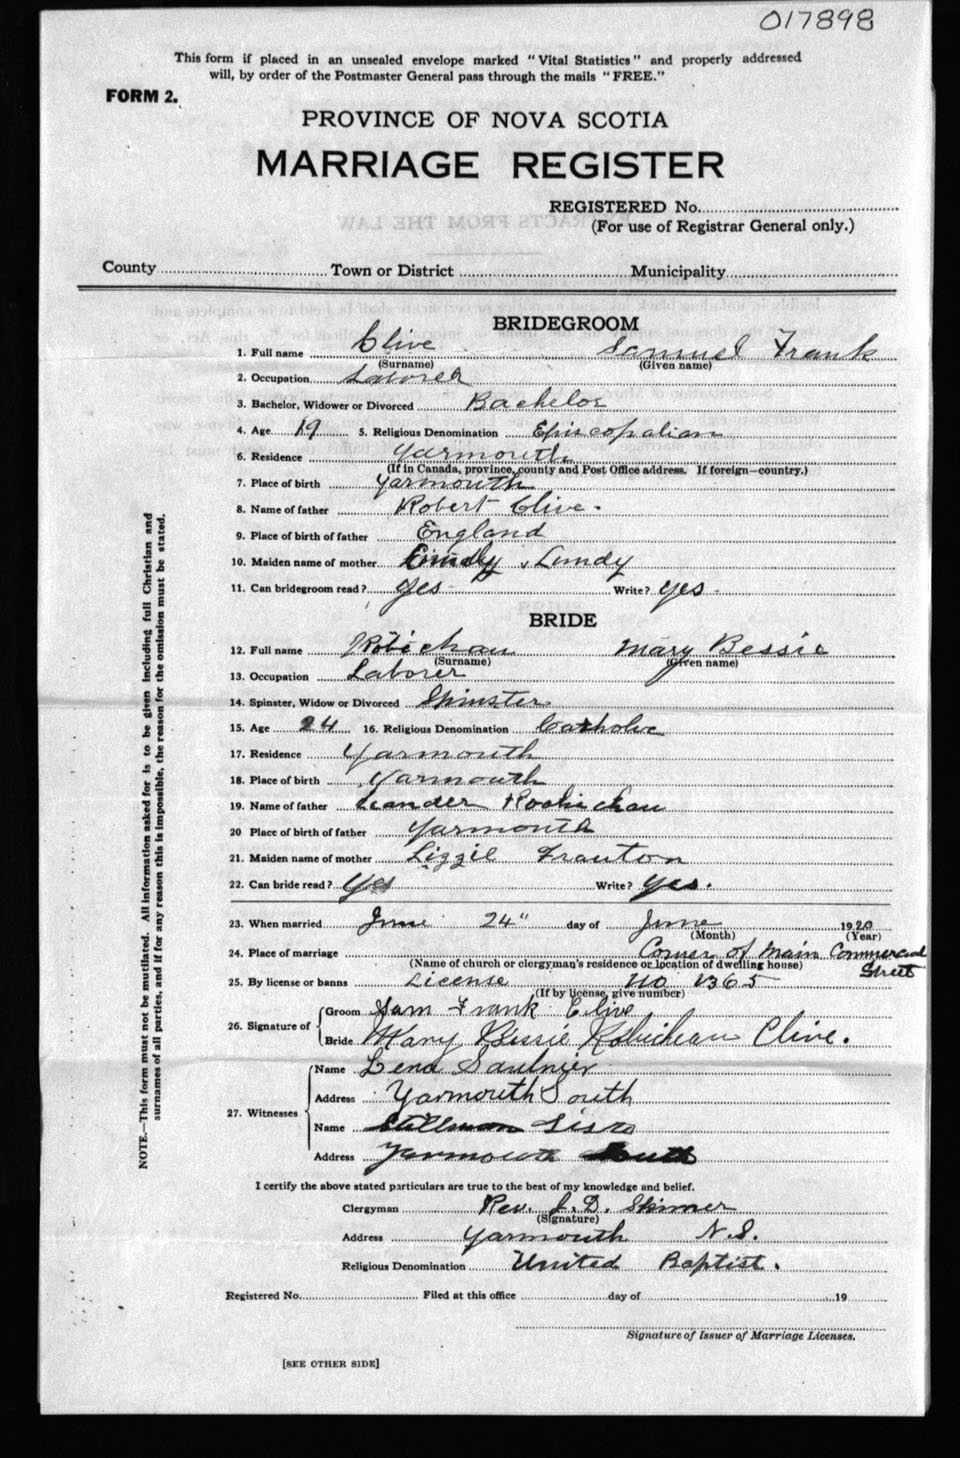 017898
This form if placed in an unsealed envelope marked "Vital Statistics" and properly addressed
will, by order of the Postmaster General pass through the mails "FREE."
FORM 2.
PROVINCE OF NOVA SCOTIA
MARRIAGE REGISTER
REGISTERED No.
(For use of Registrar General only.)
County Town or District Municipality
BRIDEGROOM
1. Full name Clive Samuel Frank
(Surname) (Given name)
2. Occupation Laborer
3. Bachelor, Widower or Divorced Bachelor
4. Age 19 5. Religious Denomination Episcopalian
6. Residence Yarmouth
(If in Canada, province, county and Post Office address. If foreign—country.)
7. Place of birth Yarmouth
8. Name of father Robert Clive.
9. Place of birth of father England
10. Maiden name of mother Lundy
11. Can bridegroom read? yes Write? yes
BRIDE
12. Full name Robichau Mary Bessie
(Surname) (Given name)
13. Occupation Laborer
14. Spinster, Widow or Divorced Spinster
15. Age 24 16. Religious Denomination Catholic
17. Residence Yarmouth
18. Place of birth Yarmouth
19. Name of father Leander Rochichau
20 Place of birth of father Yarmouth
21. Maiden name of mother Lizzie Frauton
22. Can bride read? Yes Write? yes.
23. When married June 24" day of June 1920
(Month) (Year)
24. Place of marriage Corner of Main Commercial
Street
(Name of church or clergyman's residence or location of dwelling house)
25. By license or banns License No
(If by license, give number)
26. Signature of
Groom Sam Frank Clive
Bride Mary Bessie Robicheau Clive.
27. Witnesses
Name Lena Saulnier
Address Yarmouth South
Name Stillman Sisco
Address Yarmouth South
I certify the above stated particulars are true to the best of my knowledge and belief.
Clergyman Rev. J. D. Skinner
(Signature)
Address Yarmouth N.S.
Religious Denomination United Baptist.
Registered No. Filed at this office day of 19
Signature of Issuer of Marriage Licenses.
[SEE OTHER SIDE]
NOTE.—This form must not be mutilated. All information asked for is to be given including full Christian and
surnames of all parties, and if for any reason this is impossible, the reason for the omission must be stated.